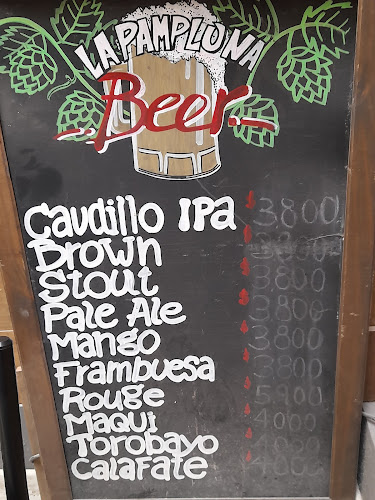 LA PAMPLONA
Beer
Caudillo IPa $ 3800
Brown $ 3800
Stout $ 3800
Pale Ale $ 3800
Mango $ 3800
Frambuesa $ 3800
Rouge $ 5900
Maqui $ 4000
Torobayo $
Calafate $